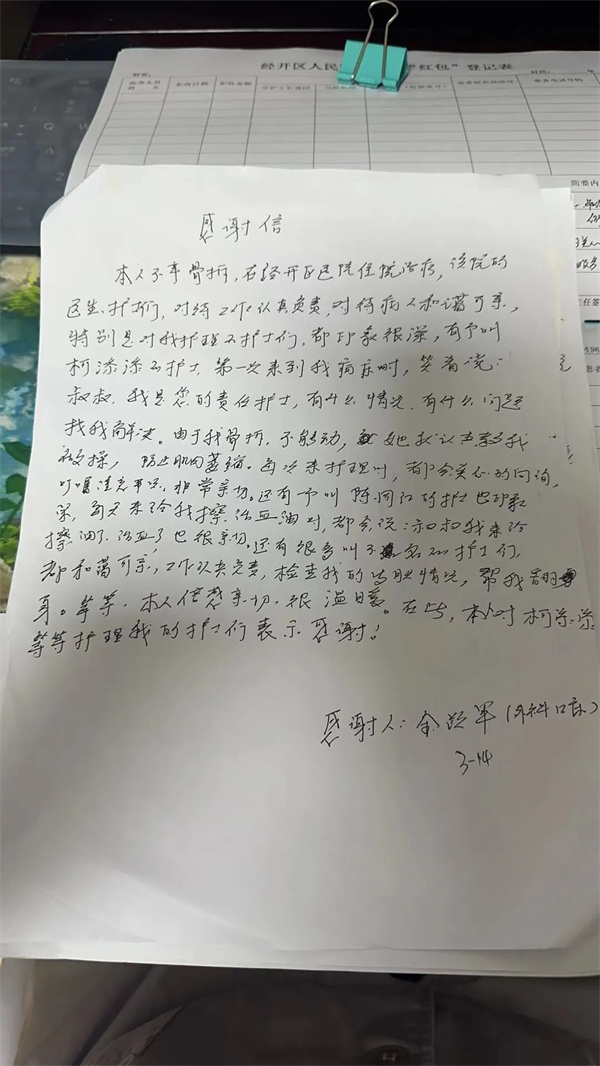 经开区人民 "红包" 登记表
感谢信
本人不幸骨折,在经开区医院住院治疗,该院的
医生、护士们,对待工作认真负责,对待病人和蔼可亲,
特别是对我护理的护士们,都印象很深,有个叫
柯添添的护士,第一次来到我病床时,笑着说:
叔叔,我是您的责任护士,有什么情况,有什么问题
找我解决。由于我骨折,不能动,她
做操,防止肌肉萎缩。每次来护理时,都会关心的问询,
叮嘱注意事项,非常亲切。还有个叫陈 的护士也印象
深,每天来给我擦活血油时,都会说:叔叔我来给
擦油了,活血了,也很亲切。还有很多叫不出名的护士们,
都和蔼可亲,工作认真负责,检查我的 情况,帮我翻
身。等等,本人倍感亲切,很温暖。在此,本人对柯添添
等等护理我的护士们表示感谢!
感谢人:余 军(外科 床)
3-14